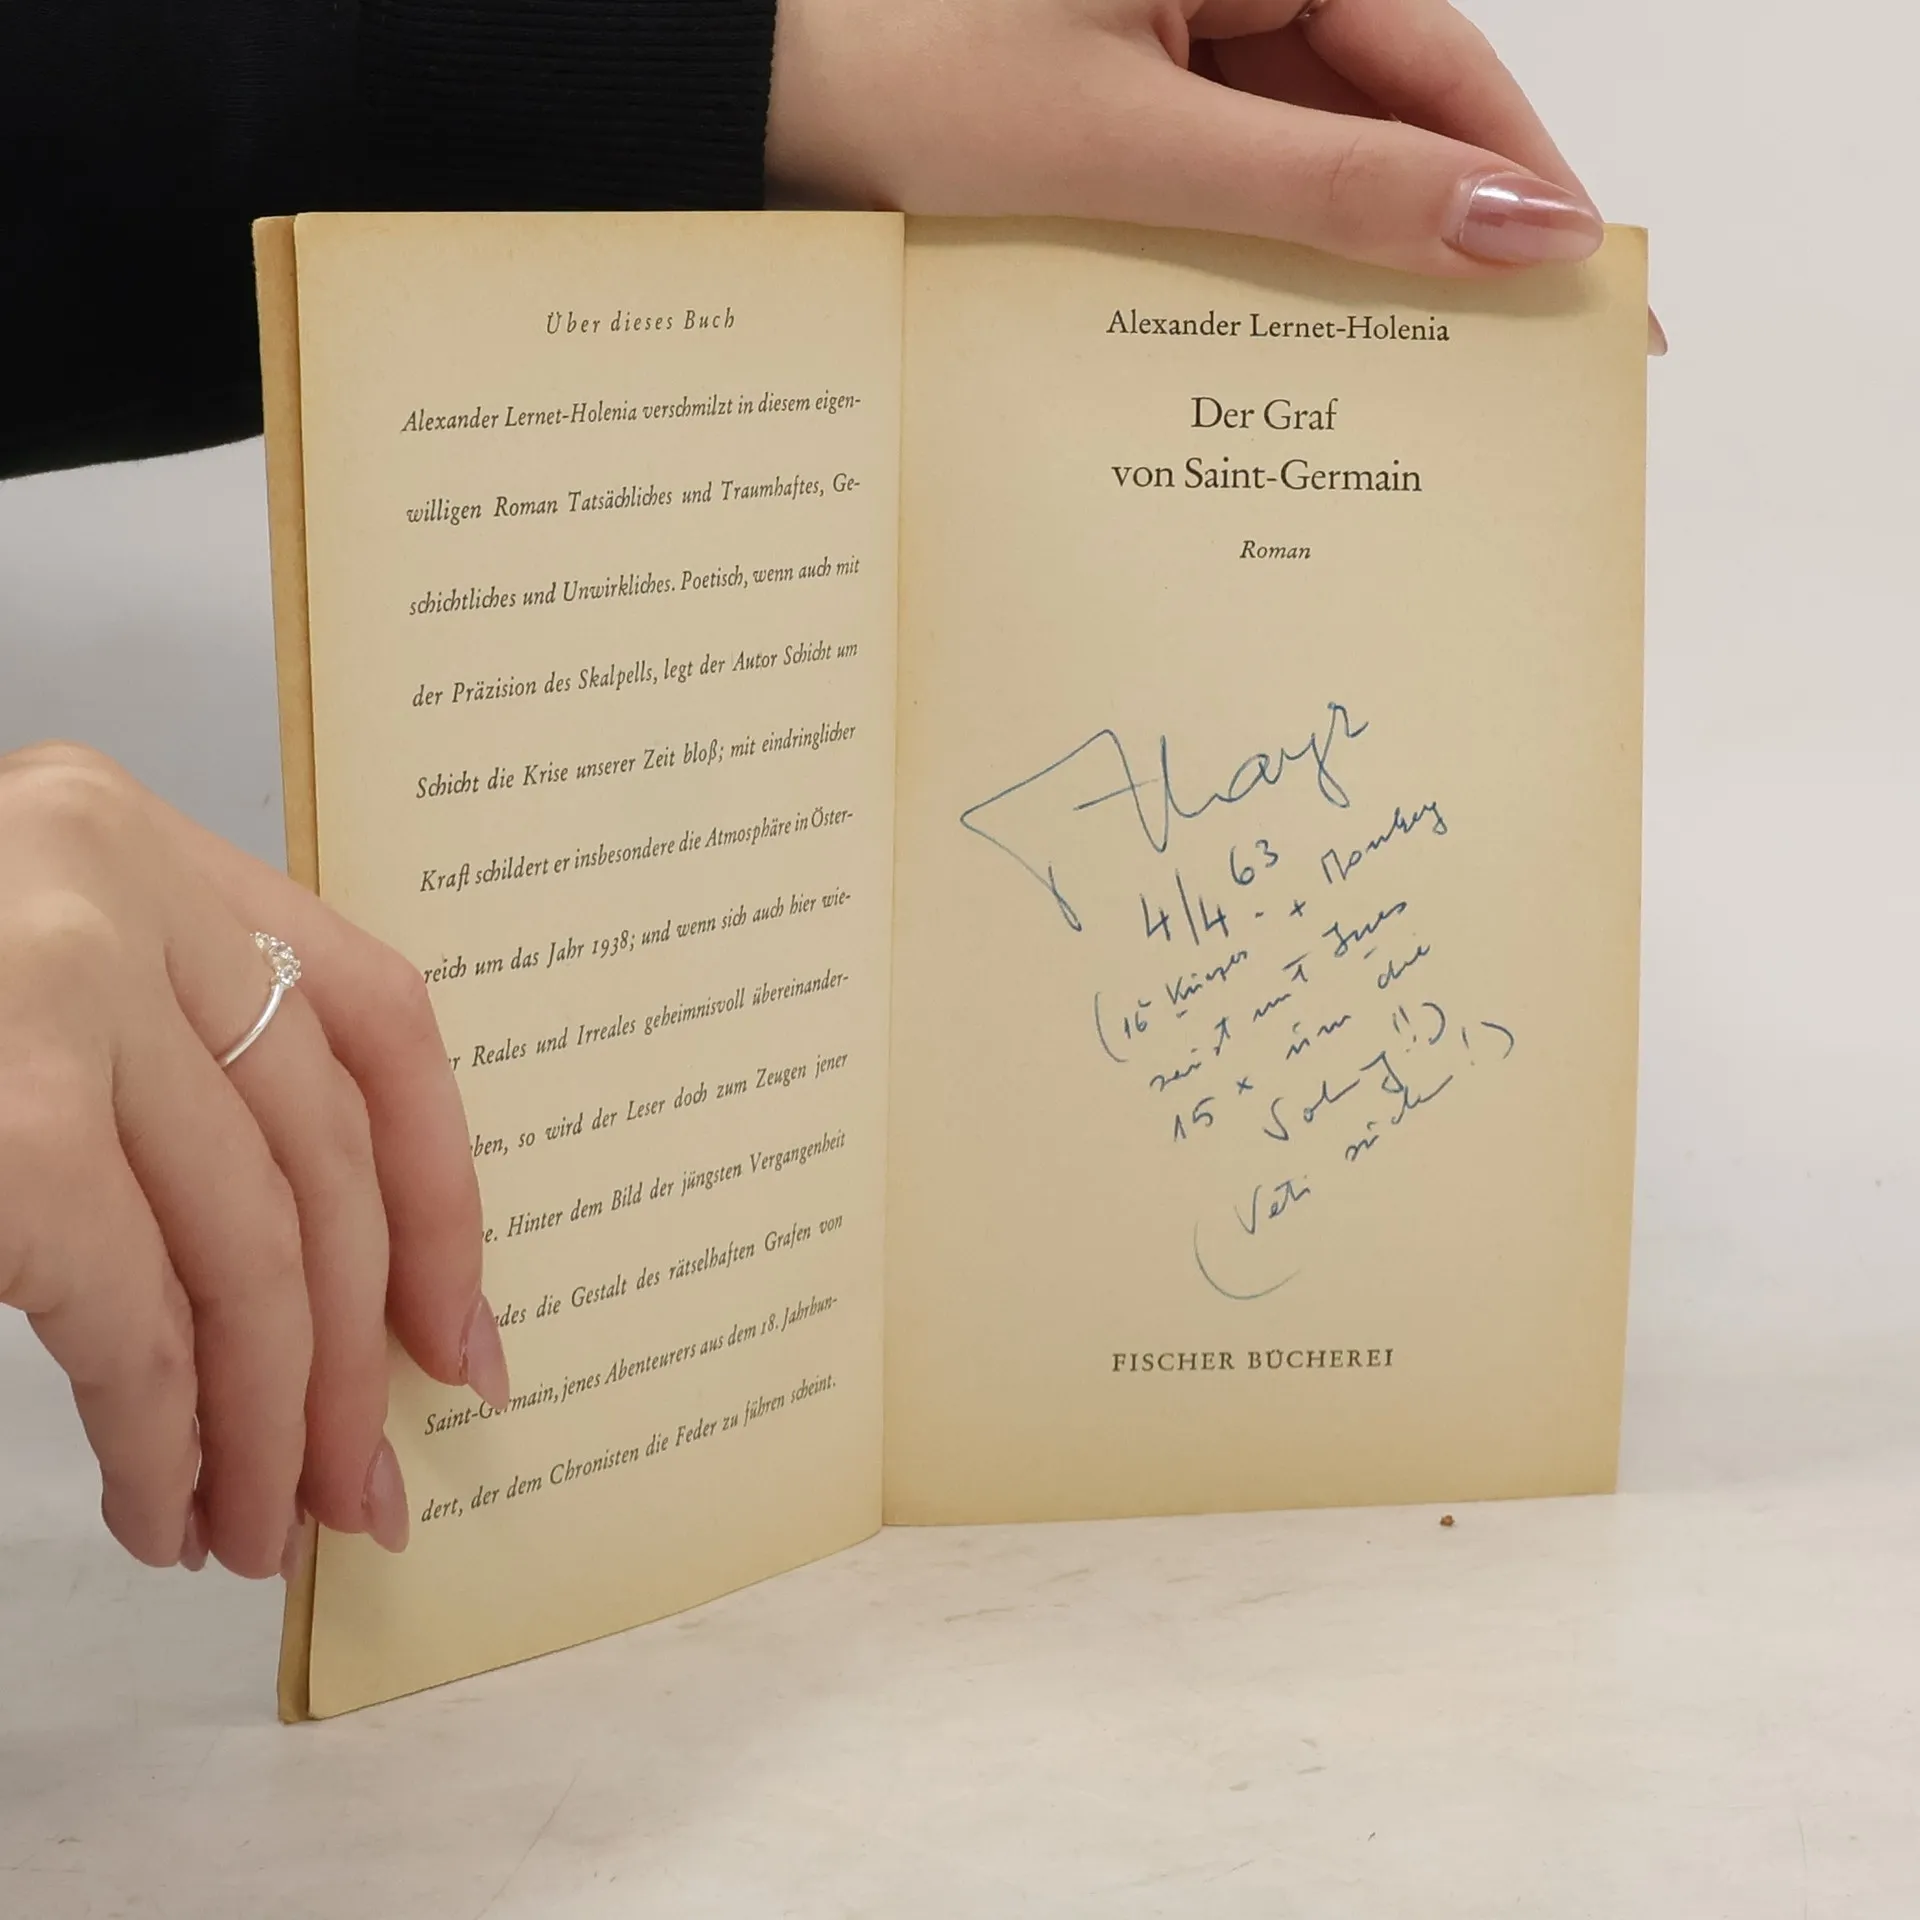 Über dieses Buch
Alexander Lernet-Holenia verschmilzt in diesem eigen-
willigen Roman Tatsächliches und Traumhaftes, Ge-
schichtliches und Unwirkliches. Poetisch, wenn auch mit
der Präzision des Skalpells, legt der Autor Schicht um
Schicht die Krise unserer Zeit bloß; mit eindringlicher
Kraft schildert er insbesondere die Atmosphäre in Öster-
reich um das Jahr 1938; und wenn sich auch hier wie-
r Reales und Irreales geheimnisvoll übereinander-
ben, so wird der Leser doch zum Zeugen jener
e. Hinter dem Bild der jüngsten Vergangenheit
des die Gestalt des rätselhaften Grafen von
Saint-Germain, jenes Abenteurers aus dem 18. Jahrhun-
dert, der dem Chronisten die Feder zu führen scheint.
Alexander Lernet-Holenia
Der Graf
von Saint-Germain
Roman
4/4 63
15 x um die
FISCHER BÜCHEREI